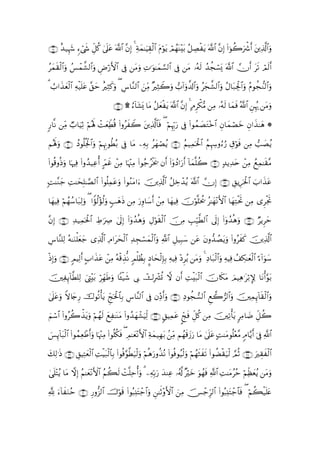 وَٱلَّذِينَ أَشْرَكُوٓا۟ إِنَّ ٱللَّهَ يَفْصِلُ بَيْنَهُمْ يَوْمَ ٱلْقِيَـٰمَةِ ۚ إِنَّ ٱللَّهَ عَلَىٰ كُلِّ شَىْءٍ شَهِيدٌ ۝
أَلَمْ تَرَ أَنَّ ٱللَّهَ يَسْجُدُ لَهُۥ مَن فِى ٱلسَّمَـٰوَٰتِ وَمَن فِى ٱلْأَرْضِ وَٱلشَّمْسُ وَٱلْقَمَرُ
وَٱلنُّجُومُ وَٱلْجِبَالُ وَٱلشَّجَرُ وَٱلدَّوَآبُّ وَكَثِيرٌ مِّنَ ٱلنَّاسِ ۖ وَكَثِيرٌ حَقَّ عَلَيْهِ ٱلْعَذَابُ ۗ
وَمَن يُهِنِ ٱللَّهُ فَمَا لَهُۥ مِن مُّكْرِمٍ ۚ إِنَّ ٱللَّهَ يَفْعَلُ مَا يَشَآءُ ۩ ۝
۞ هَـٰذَانِ خَصْمَانِ ٱخْتَصَمُوا۟ فِى رَبِّهِمْ ۖ فَٱلَّذِينَ كَفَرُوا۟ قُطِّعَتْ لَهُمْ ثِيَابٌ مِّن نَّارٍ
يُصَبُّ مِن فَوْقِ رُءُوسِهِمُ ٱلْحَمِيمُ ۝ يُصْهَرُ بِهِۦ مَا فِى بُطُونِهِمْ وَٱلْجُلُودُ ۝ وَلَهُم
مَّقَـٰمِعُ مِنْ حَدِيدٍ ۝ كُلَّمَآ أَرَادُوٓا۟ أَن يَخْرُجُوا۟ مِنْهَا مِنْ غَمٍّ أُعِيدُوا۟ فِيهَا وَذُوقُوا۟
عَذَابَ ٱلْحَرِيقِ ۝ إِنَّ ٱللَّهَ يُدْخِلُ ٱلَّذِينَ ءَامَنُوا۟ وَعَمِلُوا۟ ٱلصَّـٰلِحَـٰتِ جَنَّـٰتٍ
تَجْرِى مِن تَحْتِهَا ٱلْأَنْهَـٰرُ يُحَلَّوْنَ فِيهَا مِنْ أَسَاوِرَ مِن ذَهَبٍ وَلُؤْلُؤًا ۖ وَلِبَاسُهُمْ فِيهَا
حَرِيرٌ ۝ وَهُدُوٓا۟ إِلَى ٱلطَّيِّبِ مِنَ ٱلْقَوْلِ وَهُدُوٓا۟ إِلَىٰ صِرَٰطِ ٱلْحَمِيدِ ۝ إِنَّ
ٱلَّذِينَ كَفَرُوا۟ وَيَصُدُّونَ عَن سَبِيلِ ٱللَّهِ وَٱلْمَسْجِدِ ٱلْحَرَامِ ٱلَّذِى جَعَلْنَـٰهُ لِلنَّاسِ
سَوَآءً ٱلْعَـٰكِفُ فِيهِ وَٱلْبَادِ ۚ وَمَن يُرِدْ فِيهِ بِإِلْحَادٍۭ بِظُلْمٍ نُّذِقْهُ مِنْ عَذَابٍ أَلِيمٍ ۝ وَإِذْ
بَوَّأْنَا لِإِبْرَٰهِيمَ مَكَانَ ٱلْبَيْتِ أَن لَّا تُشْرِكْ بِى شَيْـًٔا وَطَهِّرْ بَيْتِىَ لِلطَّآئِفِينَ
وَٱلْقَآئِمِينَ وَٱلرُّكَّعِ ٱلسُّجُودِ ۝ وَأَذِّن فِى ٱلنَّاسِ بِٱلْحَجِّ يَأْتُوكَ رِجَالًا وَعَلَىٰ
كُلِّ ضَامِرٍ يَأْتِينَ مِن كُلِّ فَجٍّ عَمِيقٍ ۝ لِّيَشْهَدُوا۟ مَنَـٰفِعَ لَهُمْ وَيَذْكُرُوا۟ ٱسْمَ
ٱللَّهِ فِىٓ أَيَّامٍ مَّعْلُومَـٰتٍ عَلَىٰ مَا رَزَقَهُم مِّنۢ بَهِيمَةِ ٱلْأَنْعَـٰمِ ۖ فَكُلُوا۟ مِنْهَا وَأَطْعِمُوا۟ ٱلْبَآئِسَ
ٱلْفَقِيرَ ۝ ثُمَّ لْيَقْضُوا۟ تَفَثَهُمْ وَلْيُوفُوا۟ نُذُورَهُمْ وَلْيَطَّوَّفُوا۟ بِٱلْبَيْتِ ٱلْعَتِيقِ ۝ ذَٰلِكَ
وَمَن يُعَظِّمْ حُرُمَـٰتِ ٱللَّهِ فَهُوَ خَيْرٌ لَّهُۥ عِندَ رَبِّهِۦ ۗ وَأُحِلَّتْ لَكُمُ ٱلْأَنْعَـٰمُ إِلَّا مَا يُتْلَىٰ
عَلَيْكُمْ ۖ فَٱجْتَنِبُوا۟ ٱلرِّجْسَ مِنَ ٱلْأَوْثَـٰنِ وَٱجْتَنِبُوا۟ قَوْلَ ٱلزُّورِ ۝ حُنَفَآءَ لِلَّهِ